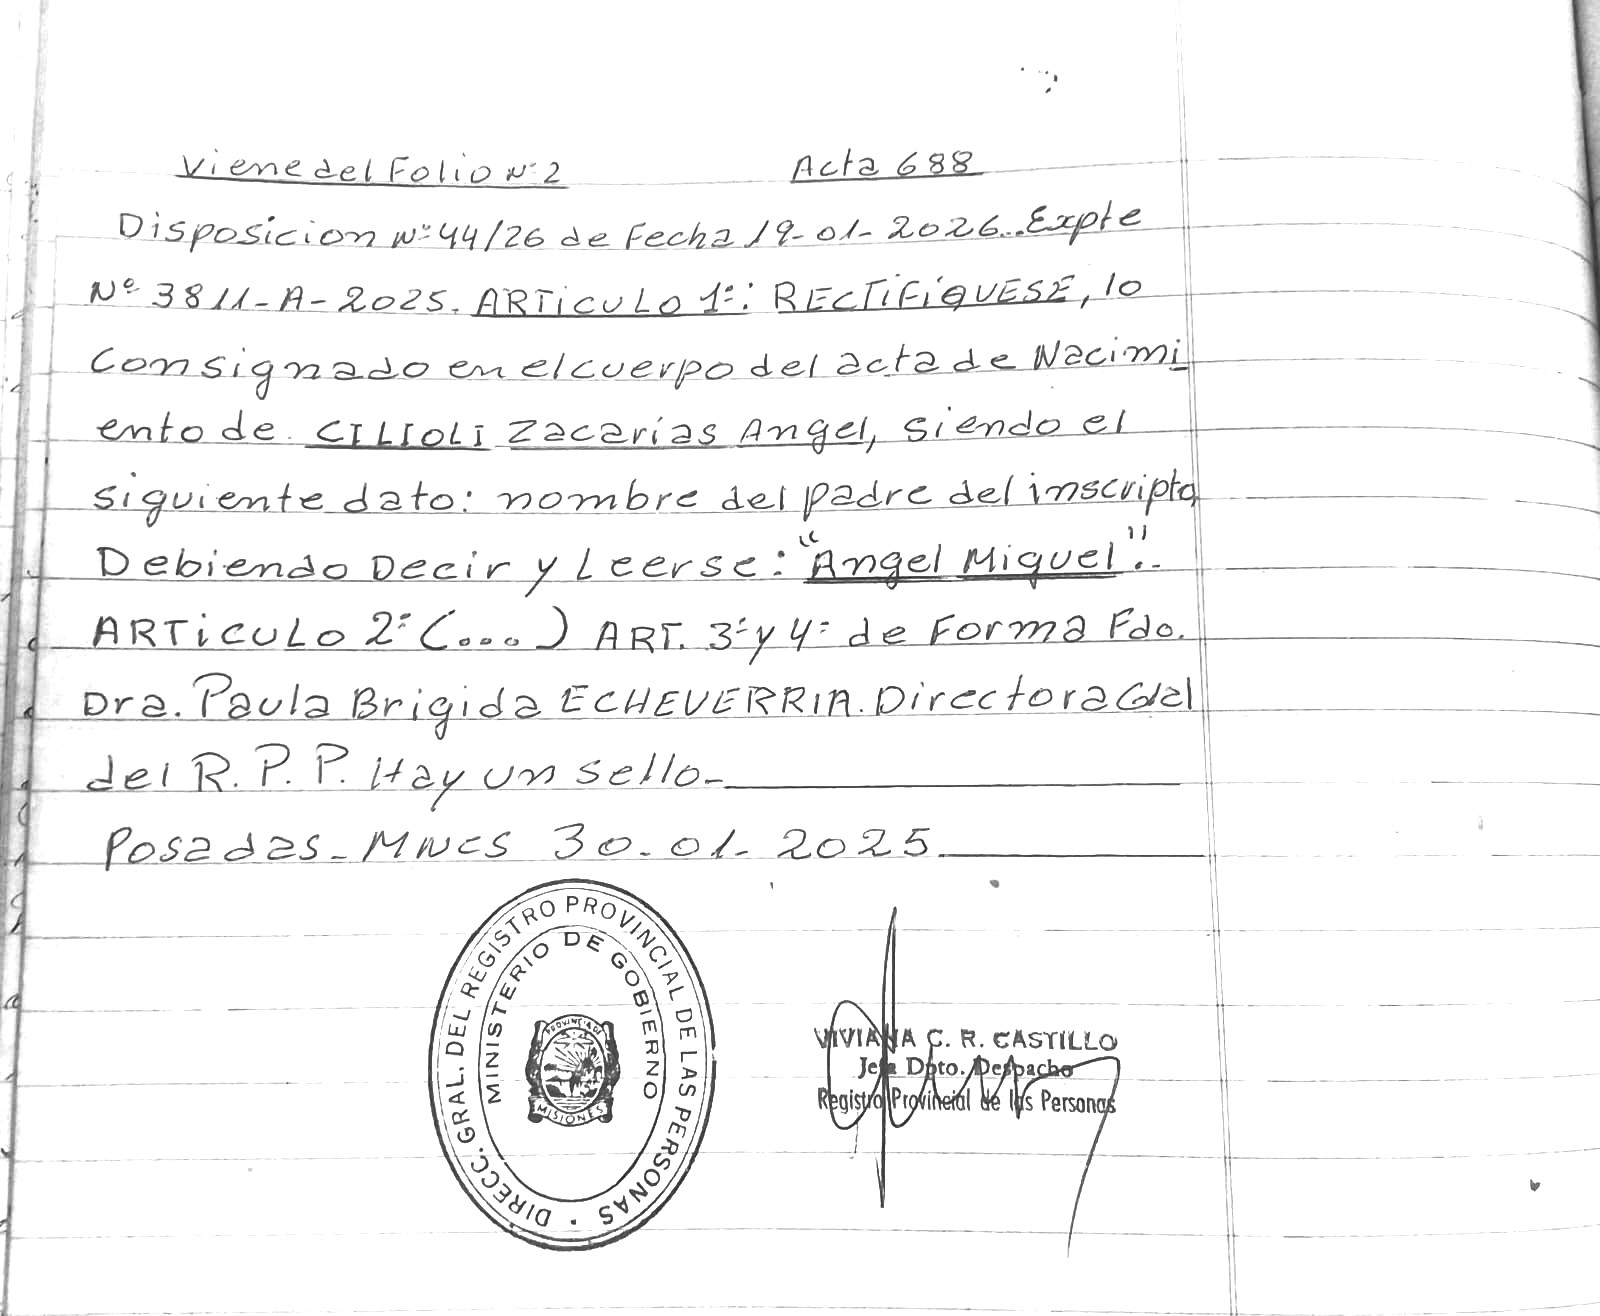 Viene del Folio Nº 2 Acta 688
Disposicion Nº 44/26 de Fecha 19-01-2026. Expte
Nº 3811-A-2025. ARTICULO 1º: RECTIFIQUESE, lo
Consignado en el cuerpo del acta de Nacimi
ento de CILIOLI Zacarias Angel, siendo el
siguiente dato: nombre del padre del inscripto,
Debiendo Decir y Leerse: "Angel Miguel".
ARTICULO 2º (...) ART. 3º y 4º de Forma Fdo.
Dra. Paula Brigida ECHEVERRIA. Directora Gral
del R. P. P. Hay un sello-
Posadas - MNES 30-01-2025
DIRECC. GRAL. DEL REGISTRO PROVINCIAL DE LAS PERSONAS
MINISTERIO DE GOBIERNO
PROVINCIA DE
MISIONES
VIVIANA C. R. CASTILLO
Jefa Dpto. Despacho
Registro Provincial de las Personas